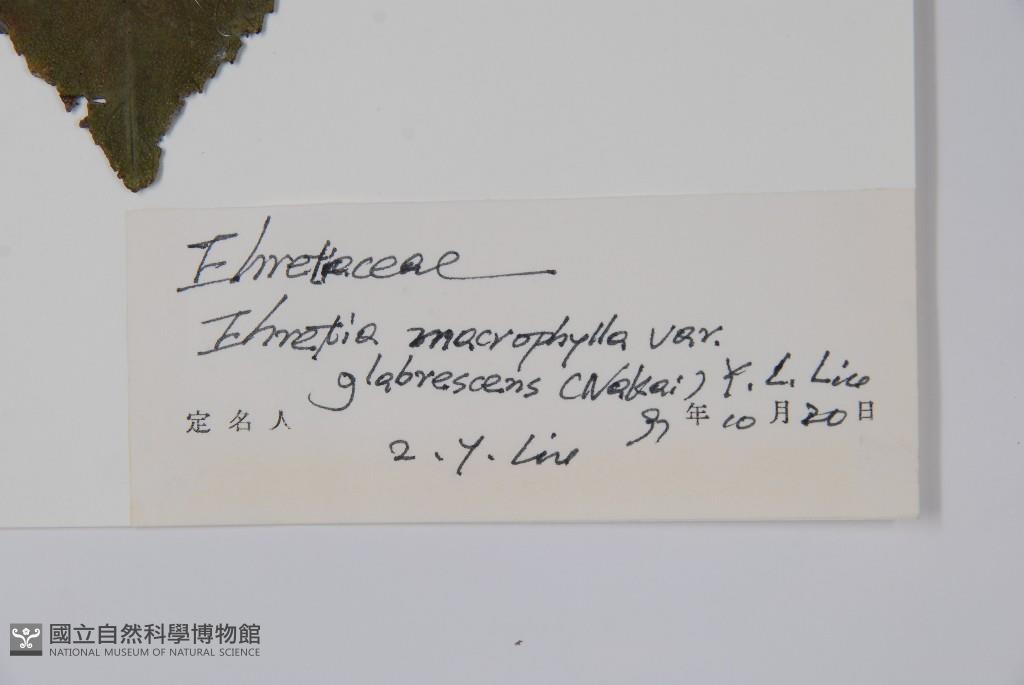 Ehretiaceae
Ehretia macrophylla var.
glabrescens (Nakai) Y. L. Liu
定名人 年 10 月 20 日
Z. Y. Liu
國立自然科學博物館
NATIONAL MUSEUM OF NATURAL SCIENCE